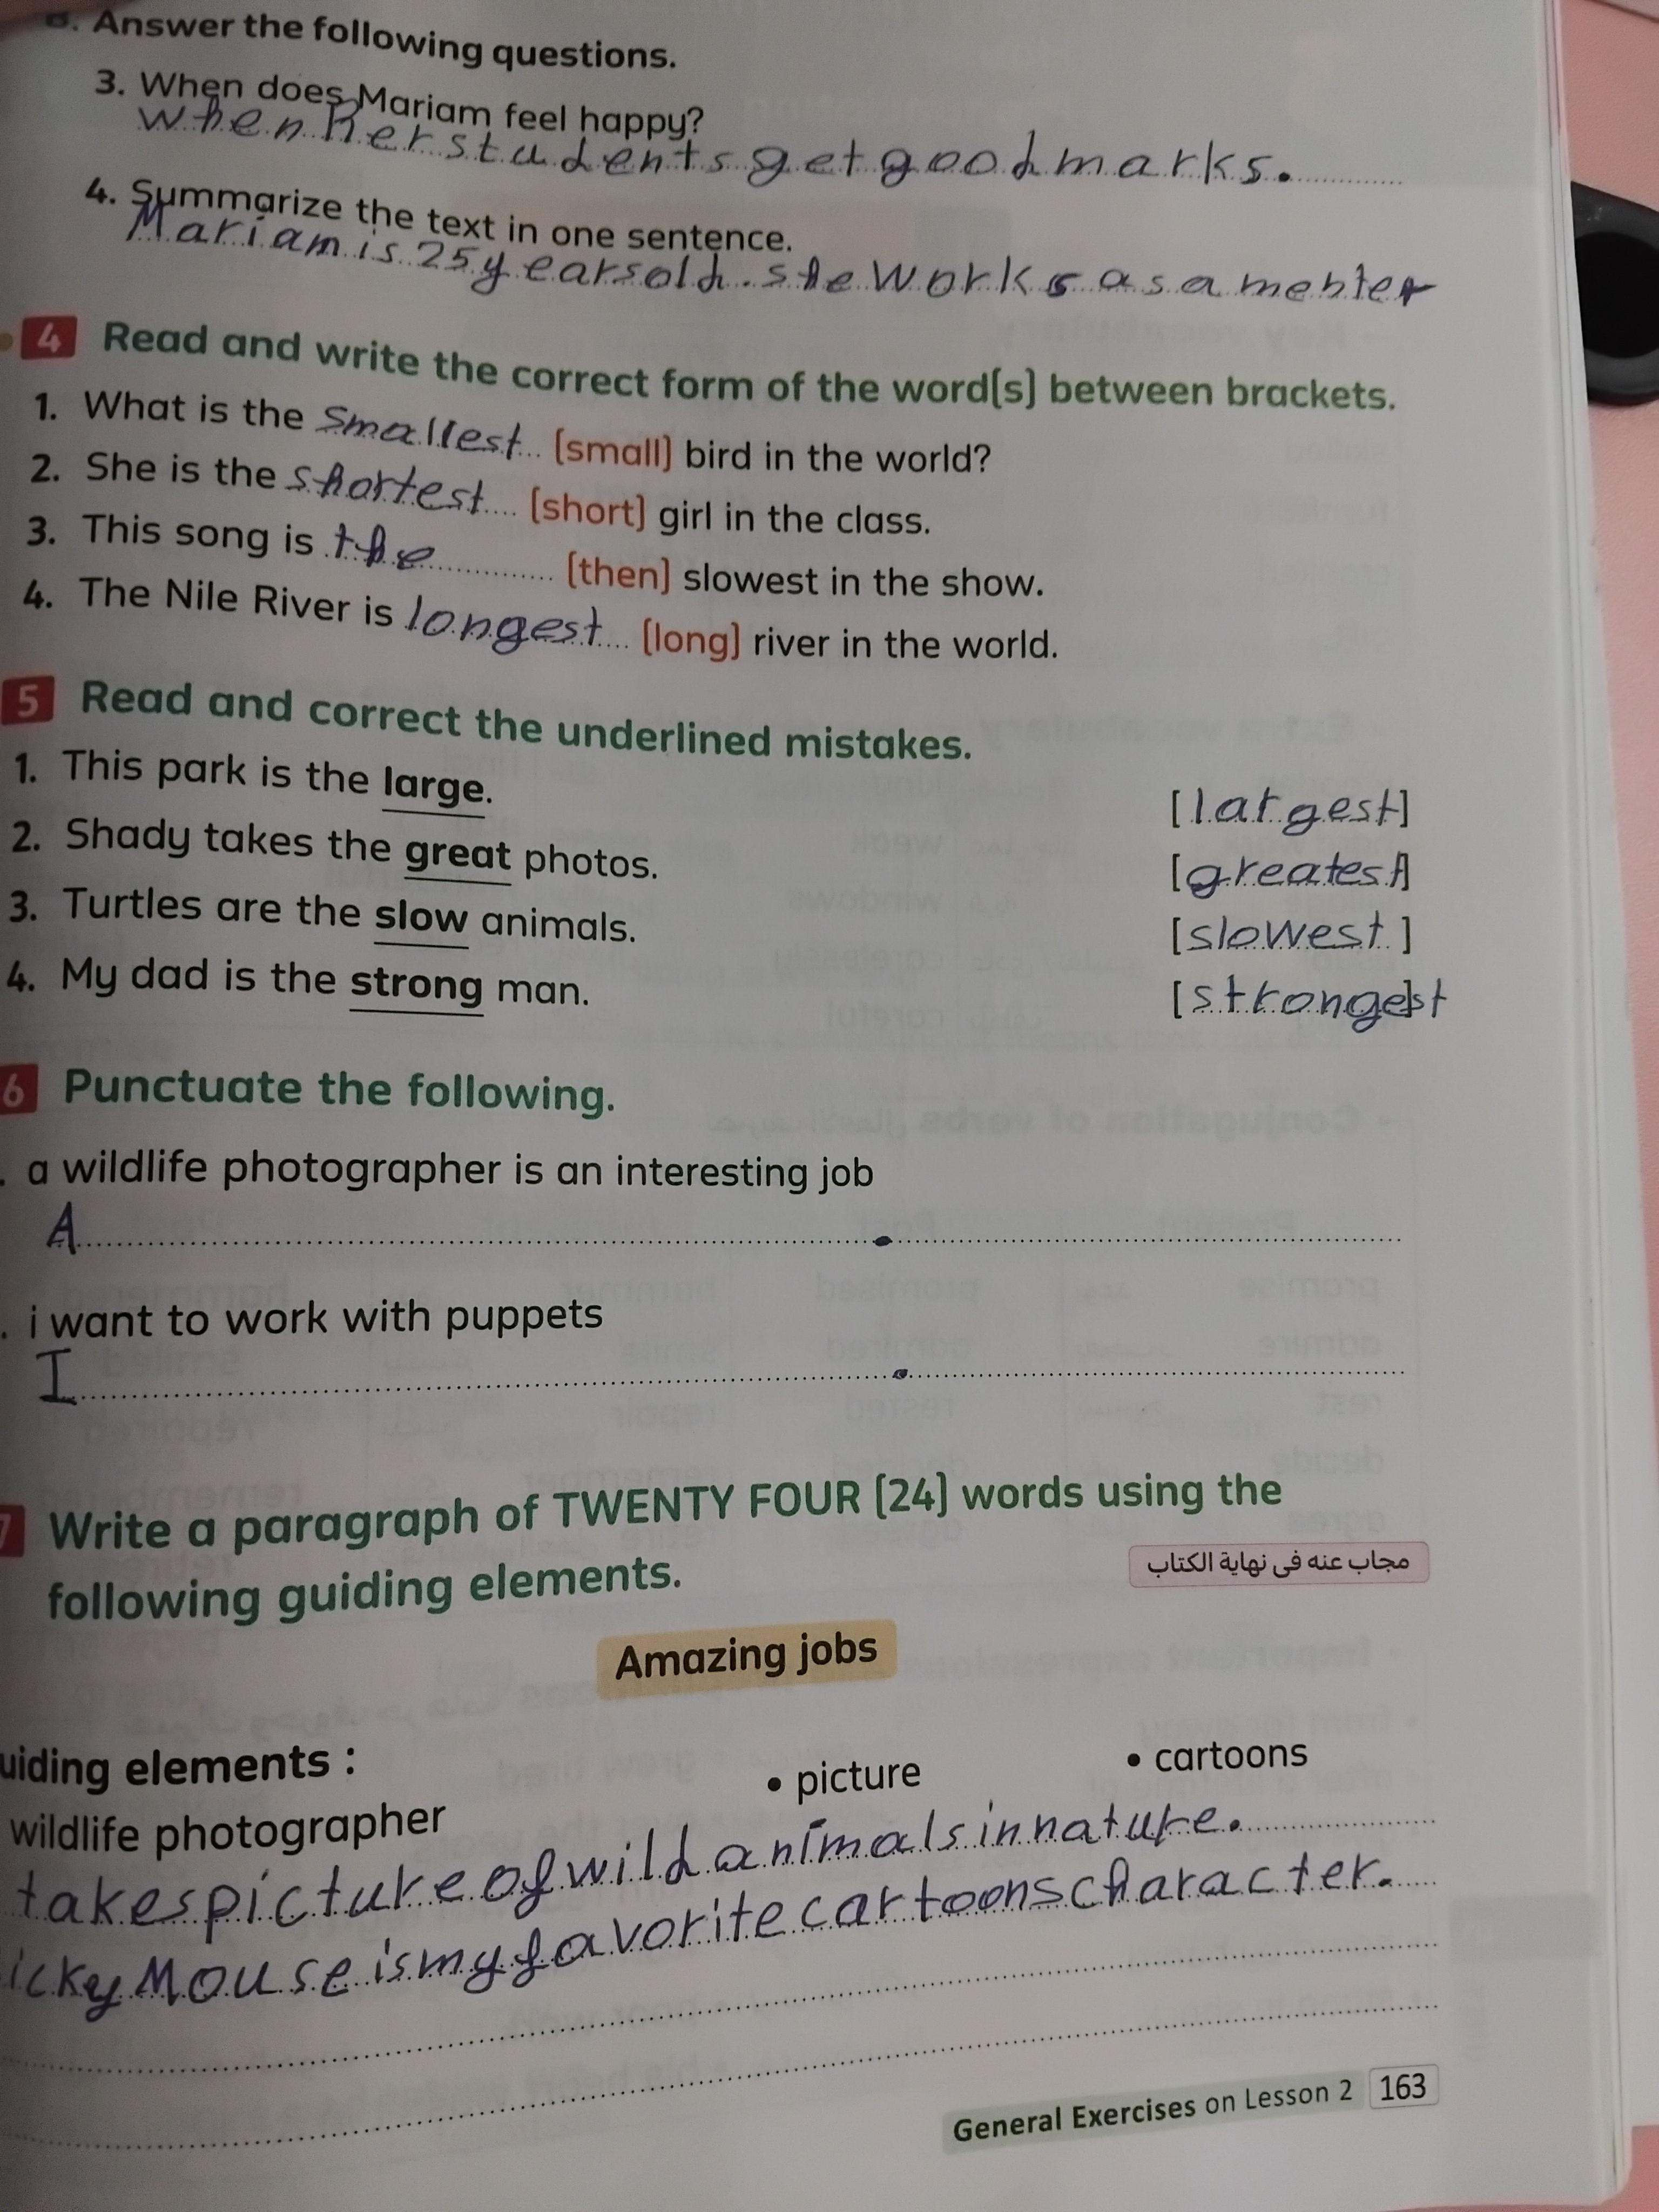 B. Answer the following questions.
3. When does Mariam feel happy?
when her students get good marks.
4. Summarize the text in one sentence.
Mariam is 25 years old. she works as a menter
4 Read and write the correct form of the word(s) between brackets.
1. What is the smallest (small) bird in the world?
2. She is the shortest (short) girl in the class.
3. This song is the (then) slowest in the show.
4. The Nile River is longest (long) river in the world.
5 Read and correct the underlined mistakes.
1. This park is the large. [largest]
2. Shady takes the great photos. [greatest]
3. Turtles are the slow animals. [slowest]
4. My dad is the strong man. [strongest]
6 Punctuate the following.
. a wildlife photographer is an interesting job
A .
. i want to work with puppets
I .
7 Write a paragraph of TWENTY FOUR (24) words using the
following guiding elements.
مجاب عنه فى نهاية الكتاب
Amazing jobs
uiding elements :
wildlife photographer • picture • cartoons
takes picture of wild animals in nature.
icky Mouse is my favorite cartoons character.
General Exercises on Lesson 2 163